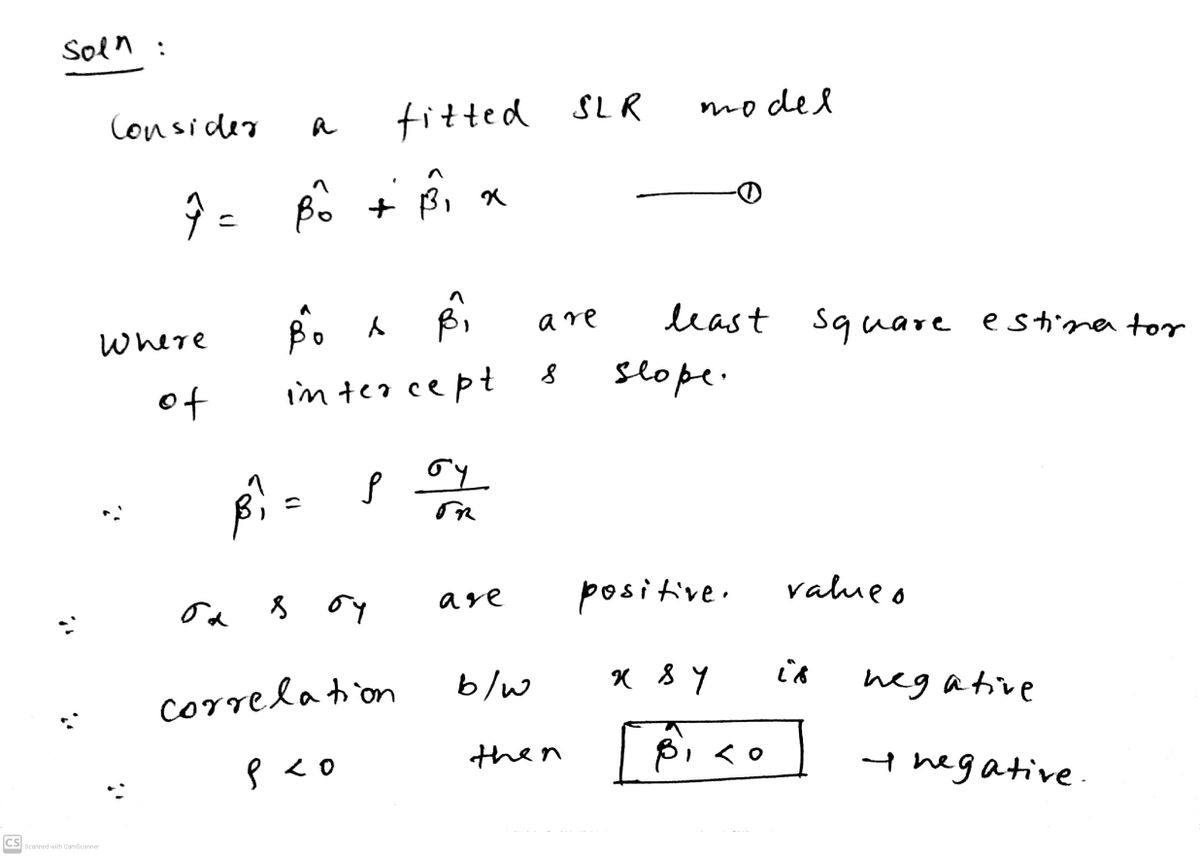 Soln :
Consider a fitted SLR model
ŷ = β̂0 + β̂1 x ——①
Where β̂0 & β̂1 are least square estimator
of intercept & slope.
∵ β̂1 = ρ σy/σx
∵ σx & σy are positive. values
∵ correlation b/w x & y is negative
∵ ρ < 0 then β̂1 < 0 → negative.
CS Scanned with CamScanner